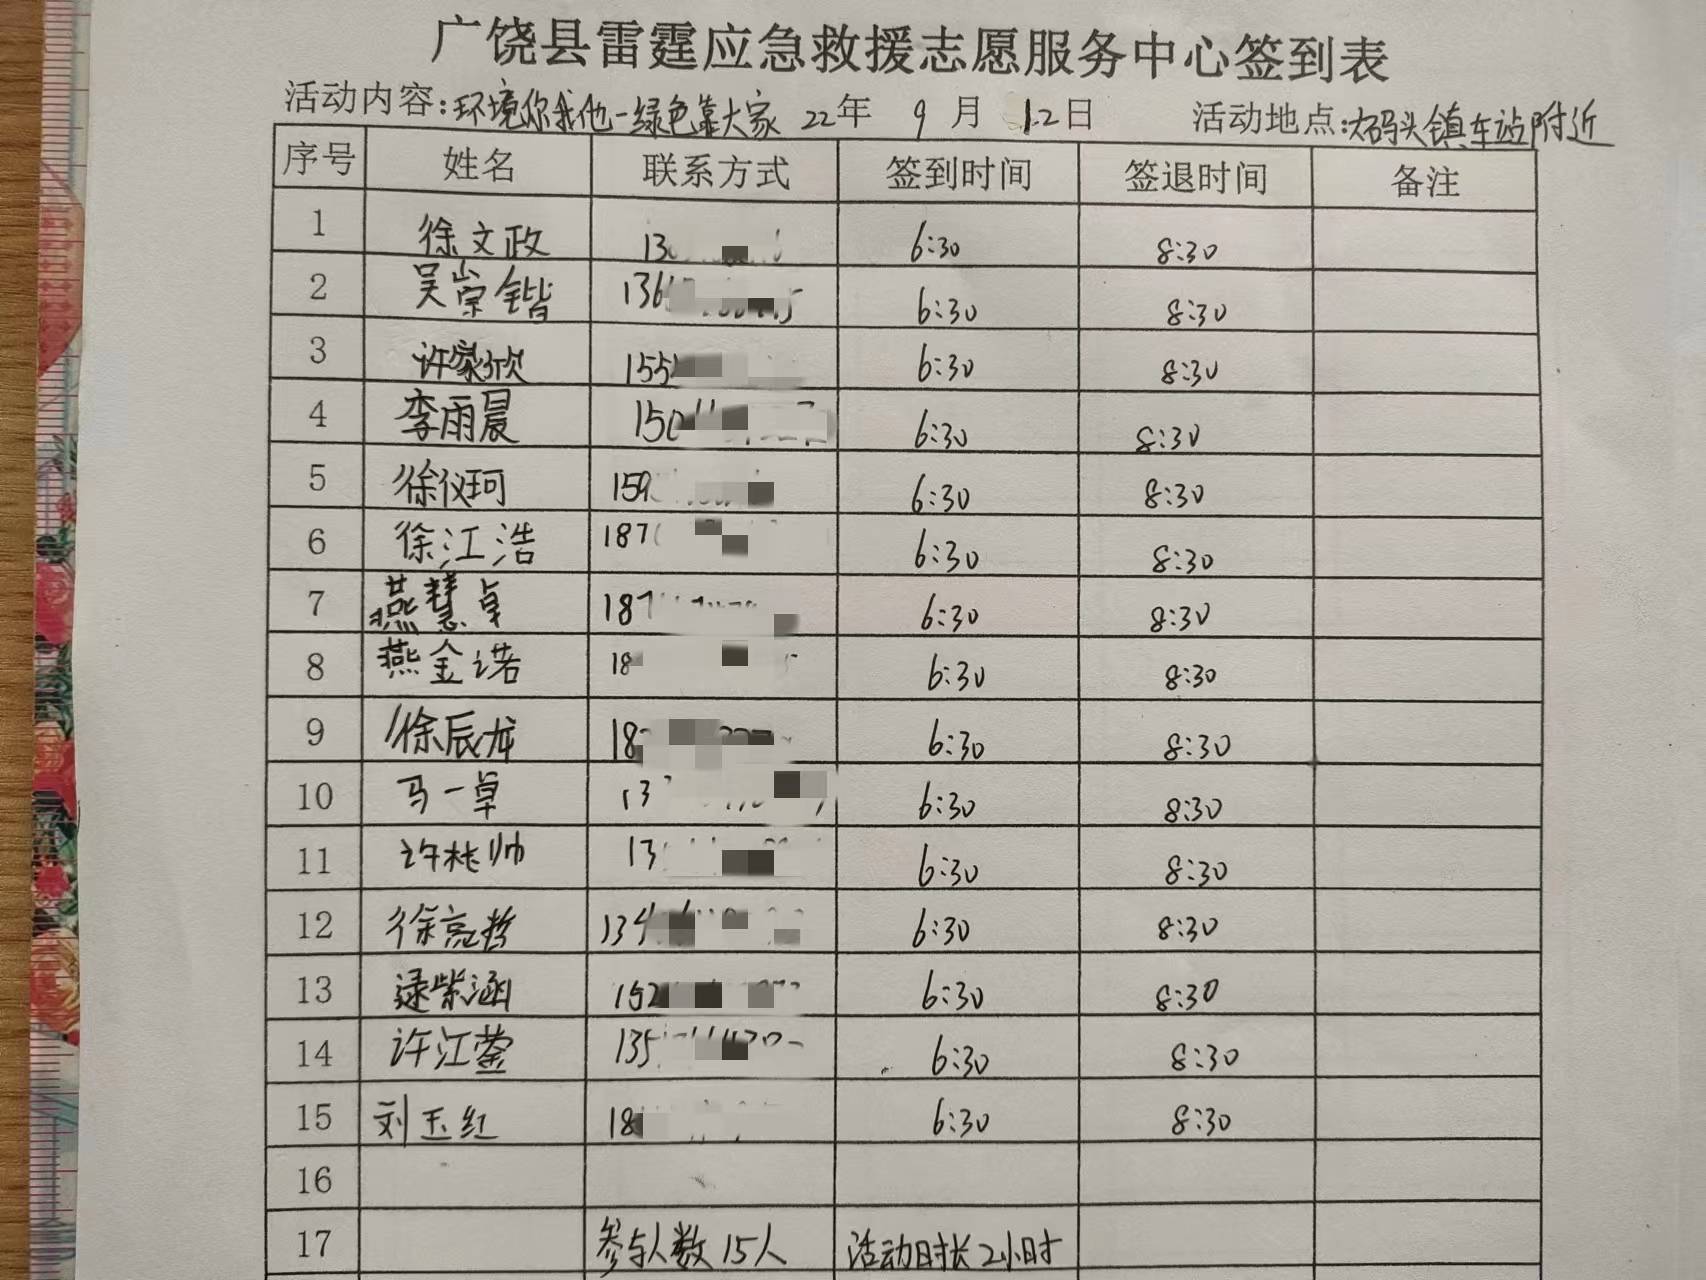 广饶县雷霆应急救援志愿服务中心签到表
活动内容:环境你我他-绿色靠大家 22年 9月 12日 活动地点:大码头镇车站附近
序号 姓名 联系方式 签到时间 签退时间 备注
1 徐文政 13 6:30 8:30
2 吴崇锴 136 6:30 8:30
3 许家欣 155 6:30 8:30
4 李雨晨 150 6:30 8:30
5 徐仪珂 159 6:30 8:30
6 徐江浩 187 6:30 8:30
7 燕慧卓 187 6:30 8:30
8 燕金诺 18 6:30 8:30
9 徐辰龙 18 6:30 8:30
10 马一卓 13 6:30 8:30
11 许彬帅 13 6:30 8:30
12 徐亮哲 134 6:30 8:30
13 逯紫涵 152 6:30 8:30
14 许江蓥 135 6:30 8:30
15 刘玉红 18 6:30 8:30
16
17 参与人数15人 活动时长2小时